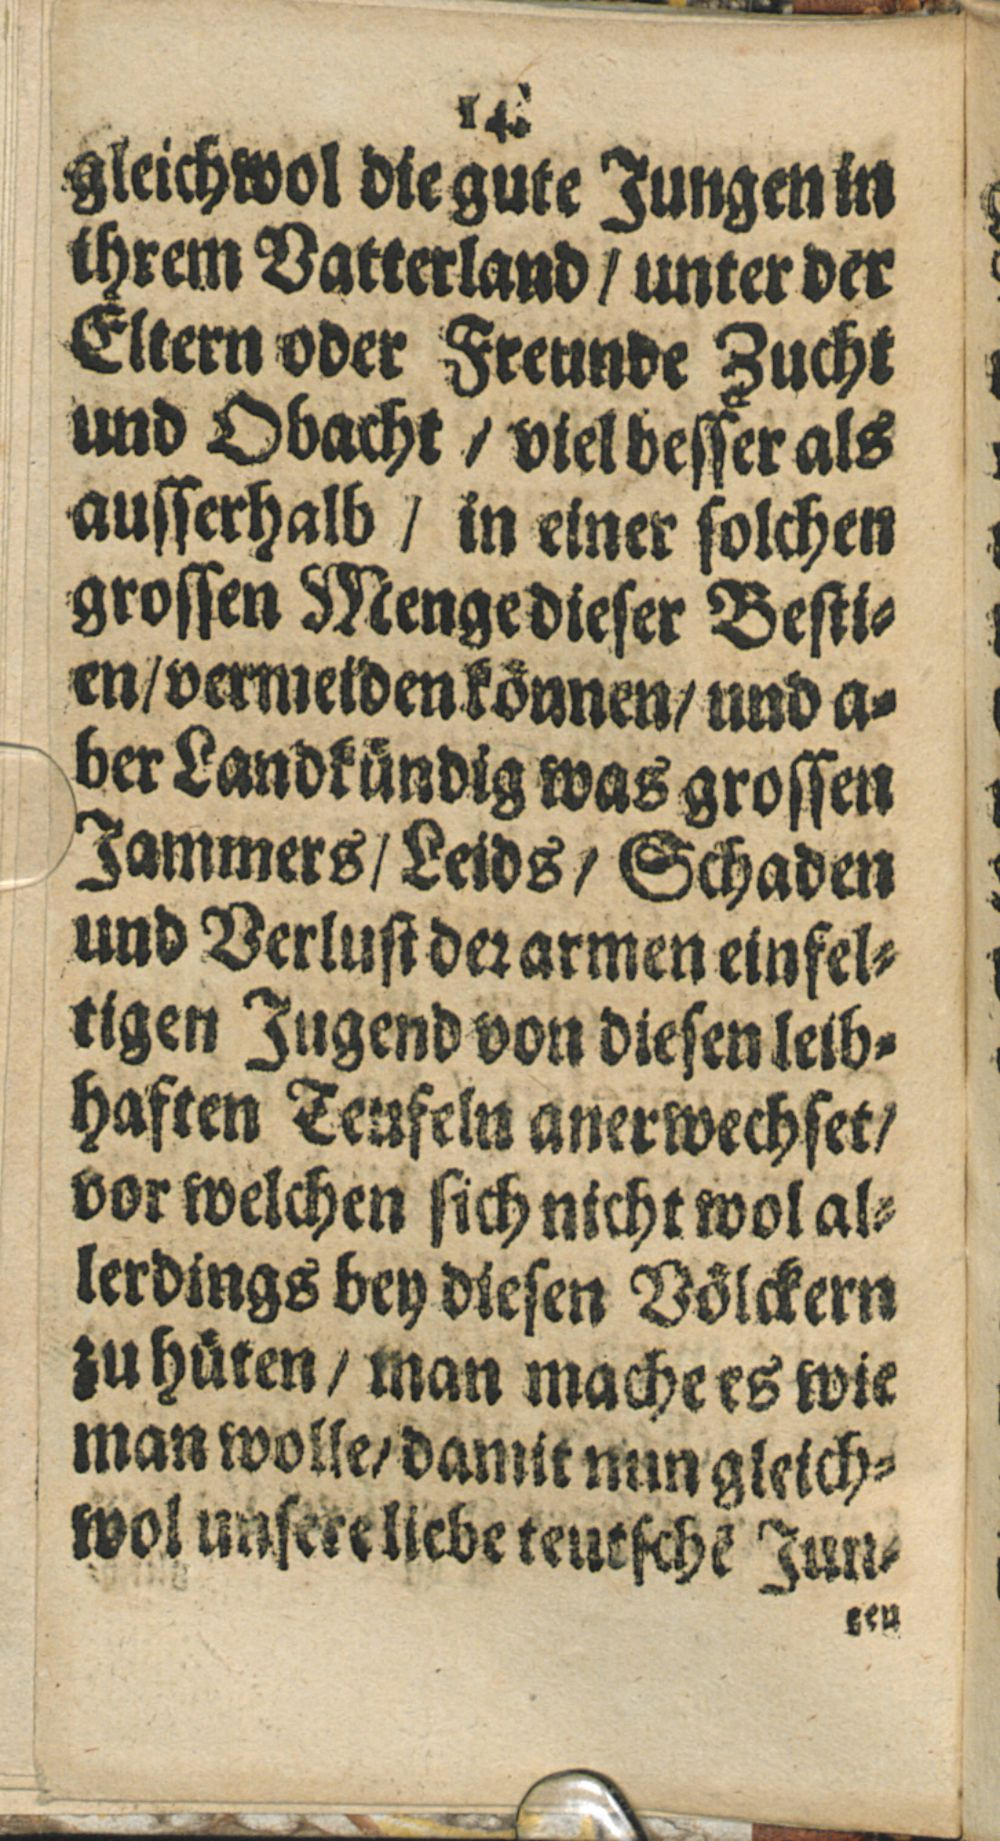 14.
gleichwol die gute Jungen in
ihrem Vatterland / unter der
Eltern oder Freunde Zucht
und Obacht / viel besser als
ausserhalb / in einer solchen
grossen Menge dieser Besti-
en / vermeiden können / und a-
ber Landkündig was grossen
Jammers / Leids / Schaden
und Verlust der armen einfel-
tigen Jugend von diesen leib-
haften Teufeln anerwechset /
vor welchen sich nicht wol al-
lerdings bey diesen Völckern
zu hüten / man mache es wie
man wolle / damit nun gleich-
wol unsere liebe teutsche Jun-
gen